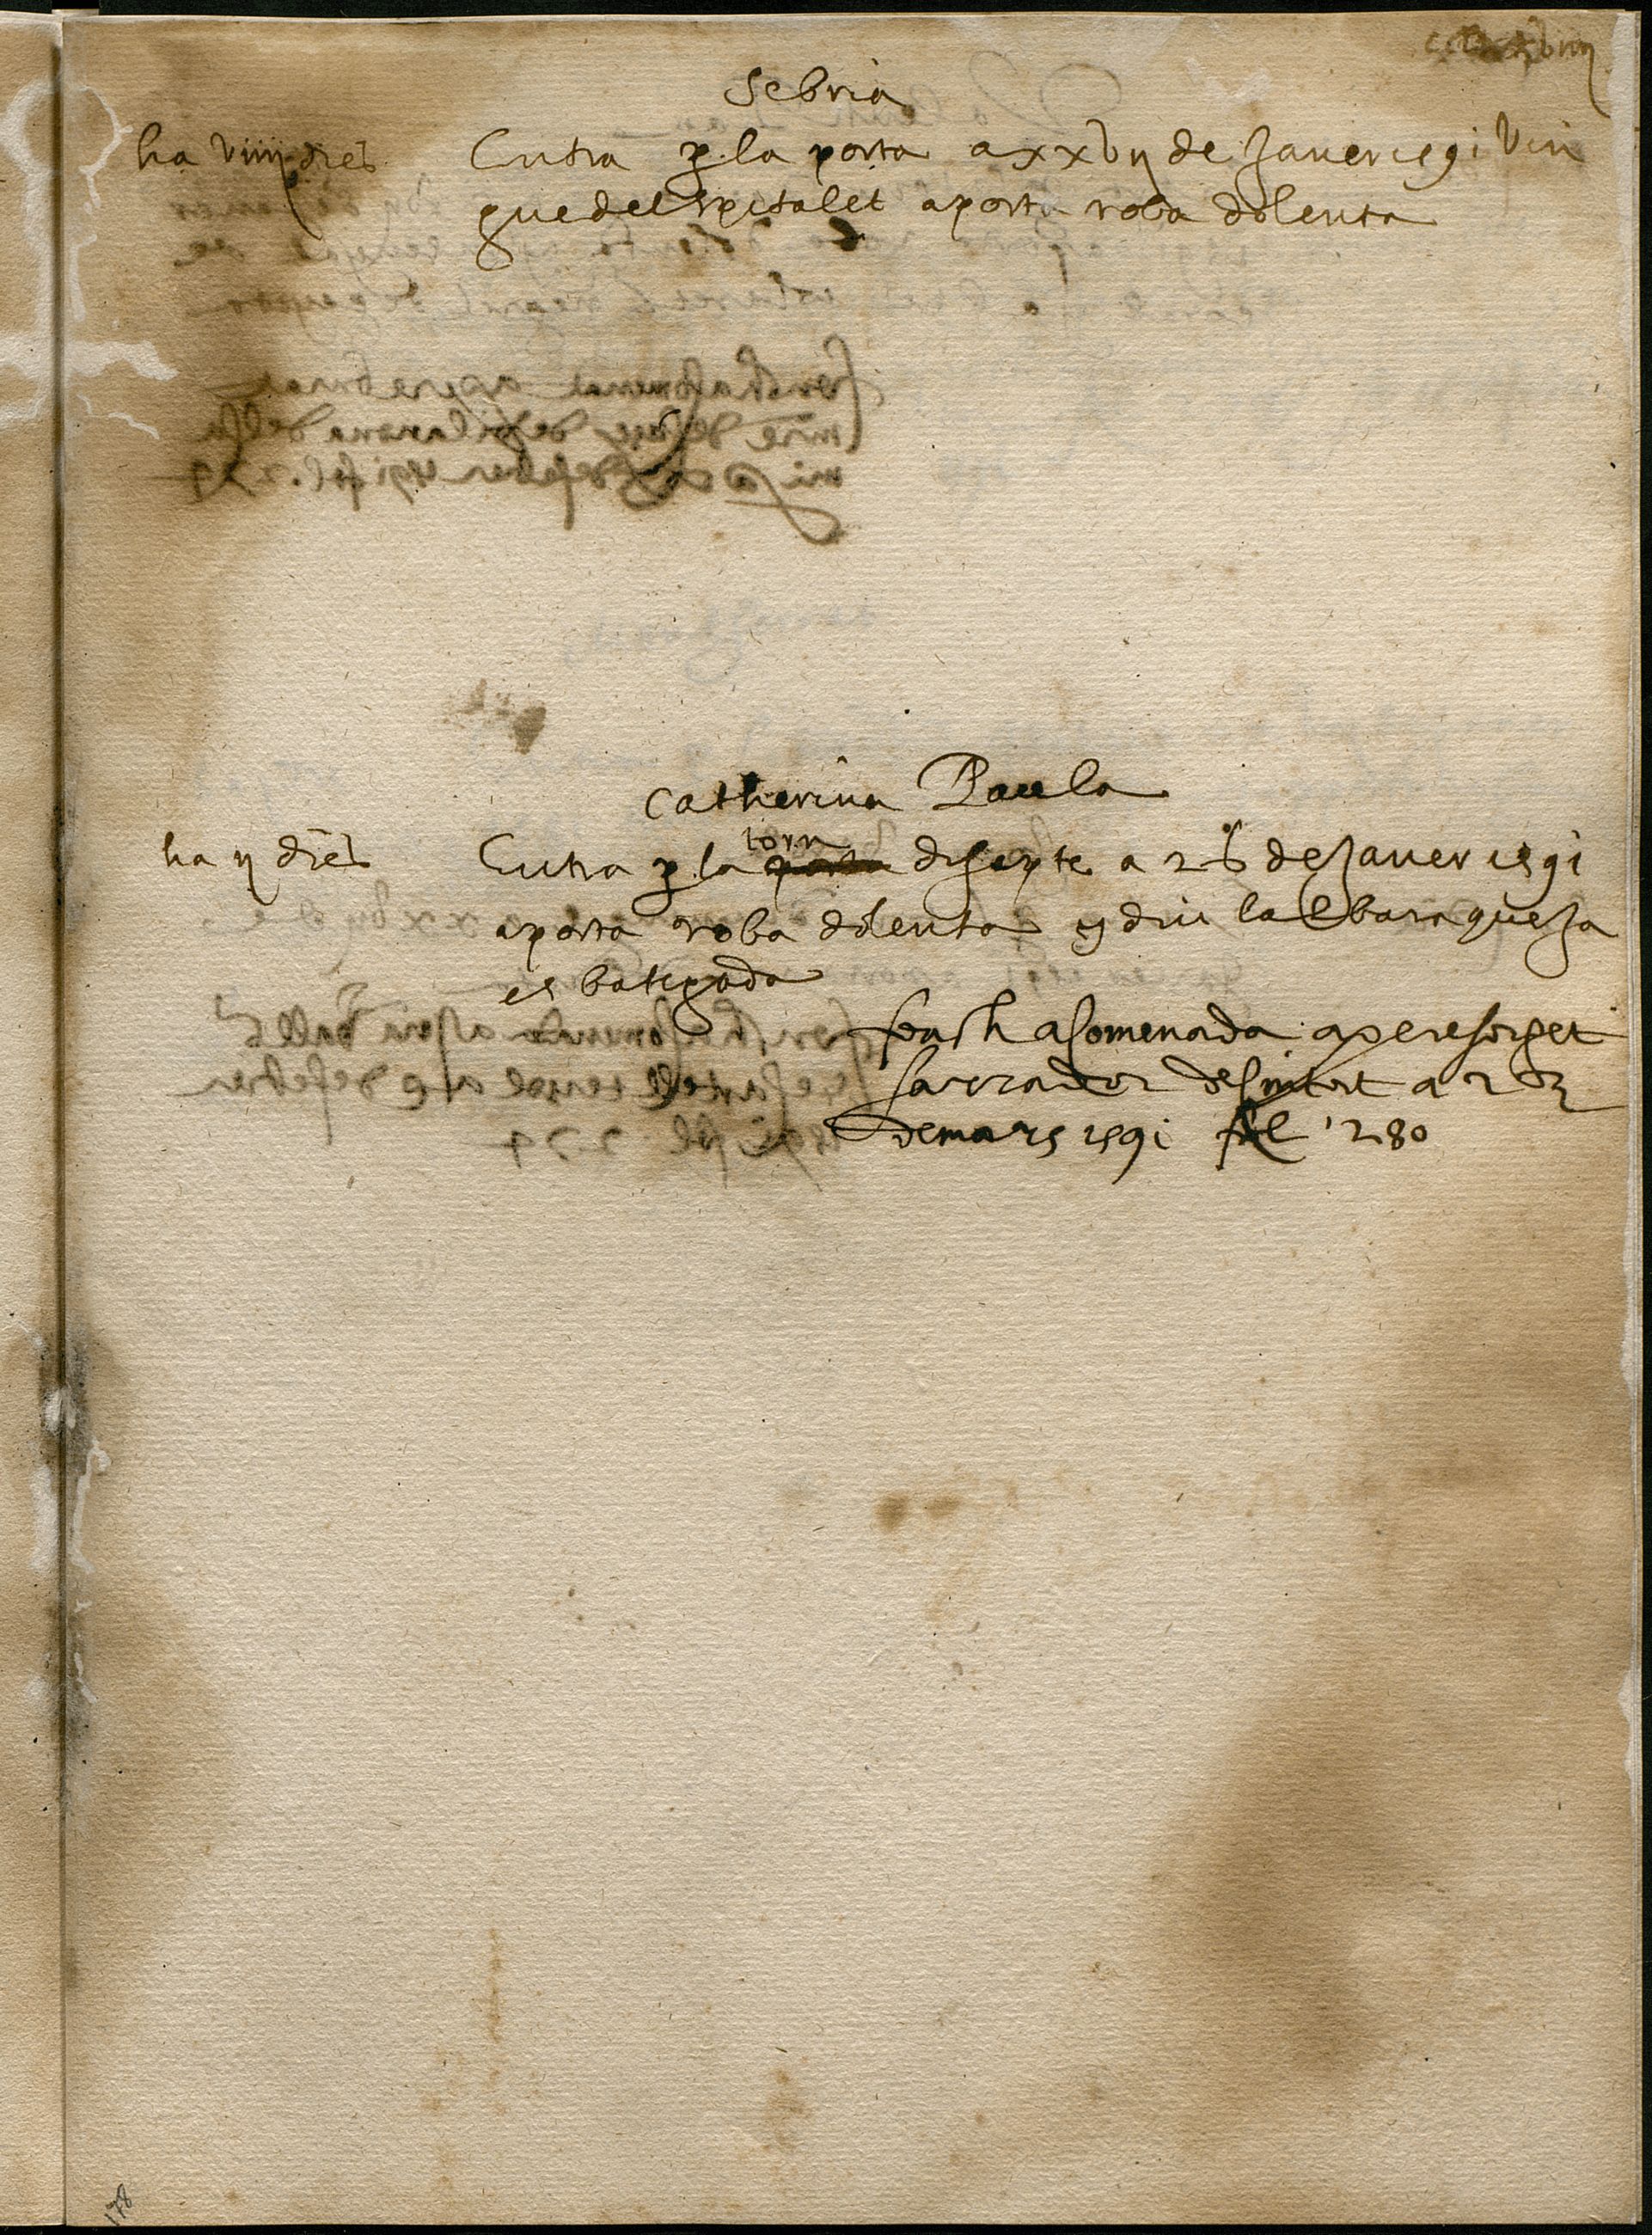 Sebria
ha viiij dies Entra p la porta a xxvij de Janer 1591 Vin
gue del spitalet aporta roba dolenta
Catherina Paula
ha ij dies Entra p. la porta torn disapte a 26 de Janer 1591
aporta roba dolenta y diu lalbara que Ja
es bategada
fonch acomenada a pere forget
sarrador desmtort a 2 de
de mars 1591 fol 280
178